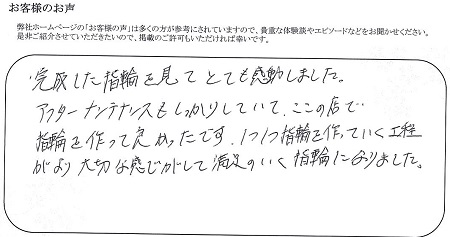 お客様のお声
弊社ホームページの「お客様の声」は多くの方が参考にされていますので、貴重な体験談やエピソードなどをお聞かせください。
是非ご紹介させていただきたいので、掲載のご許可もいただければ幸いです。
完成した指輪を見てとても感動しました。
アフターメンテナンスもしっかりしていて、ここの店で
指輪を作って良かったです。1つ1つ指輪を作っていく工程
がより大切な感じがして満足のいく指輪になりました。